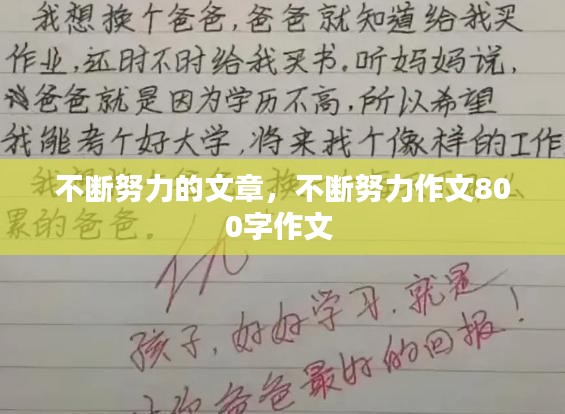 我想换个爸爸,爸爸就知道给我买
作业,还时不时给我买书。听妈妈说,
爸爸就是因为学历不高,所以希望
我能考个好大学,将来找个像样的工作
不断努力的文章，不断努力作文80
0字作文
累的爸爸。
优
孩子,好好学习,就是
爸爸最好的回报!